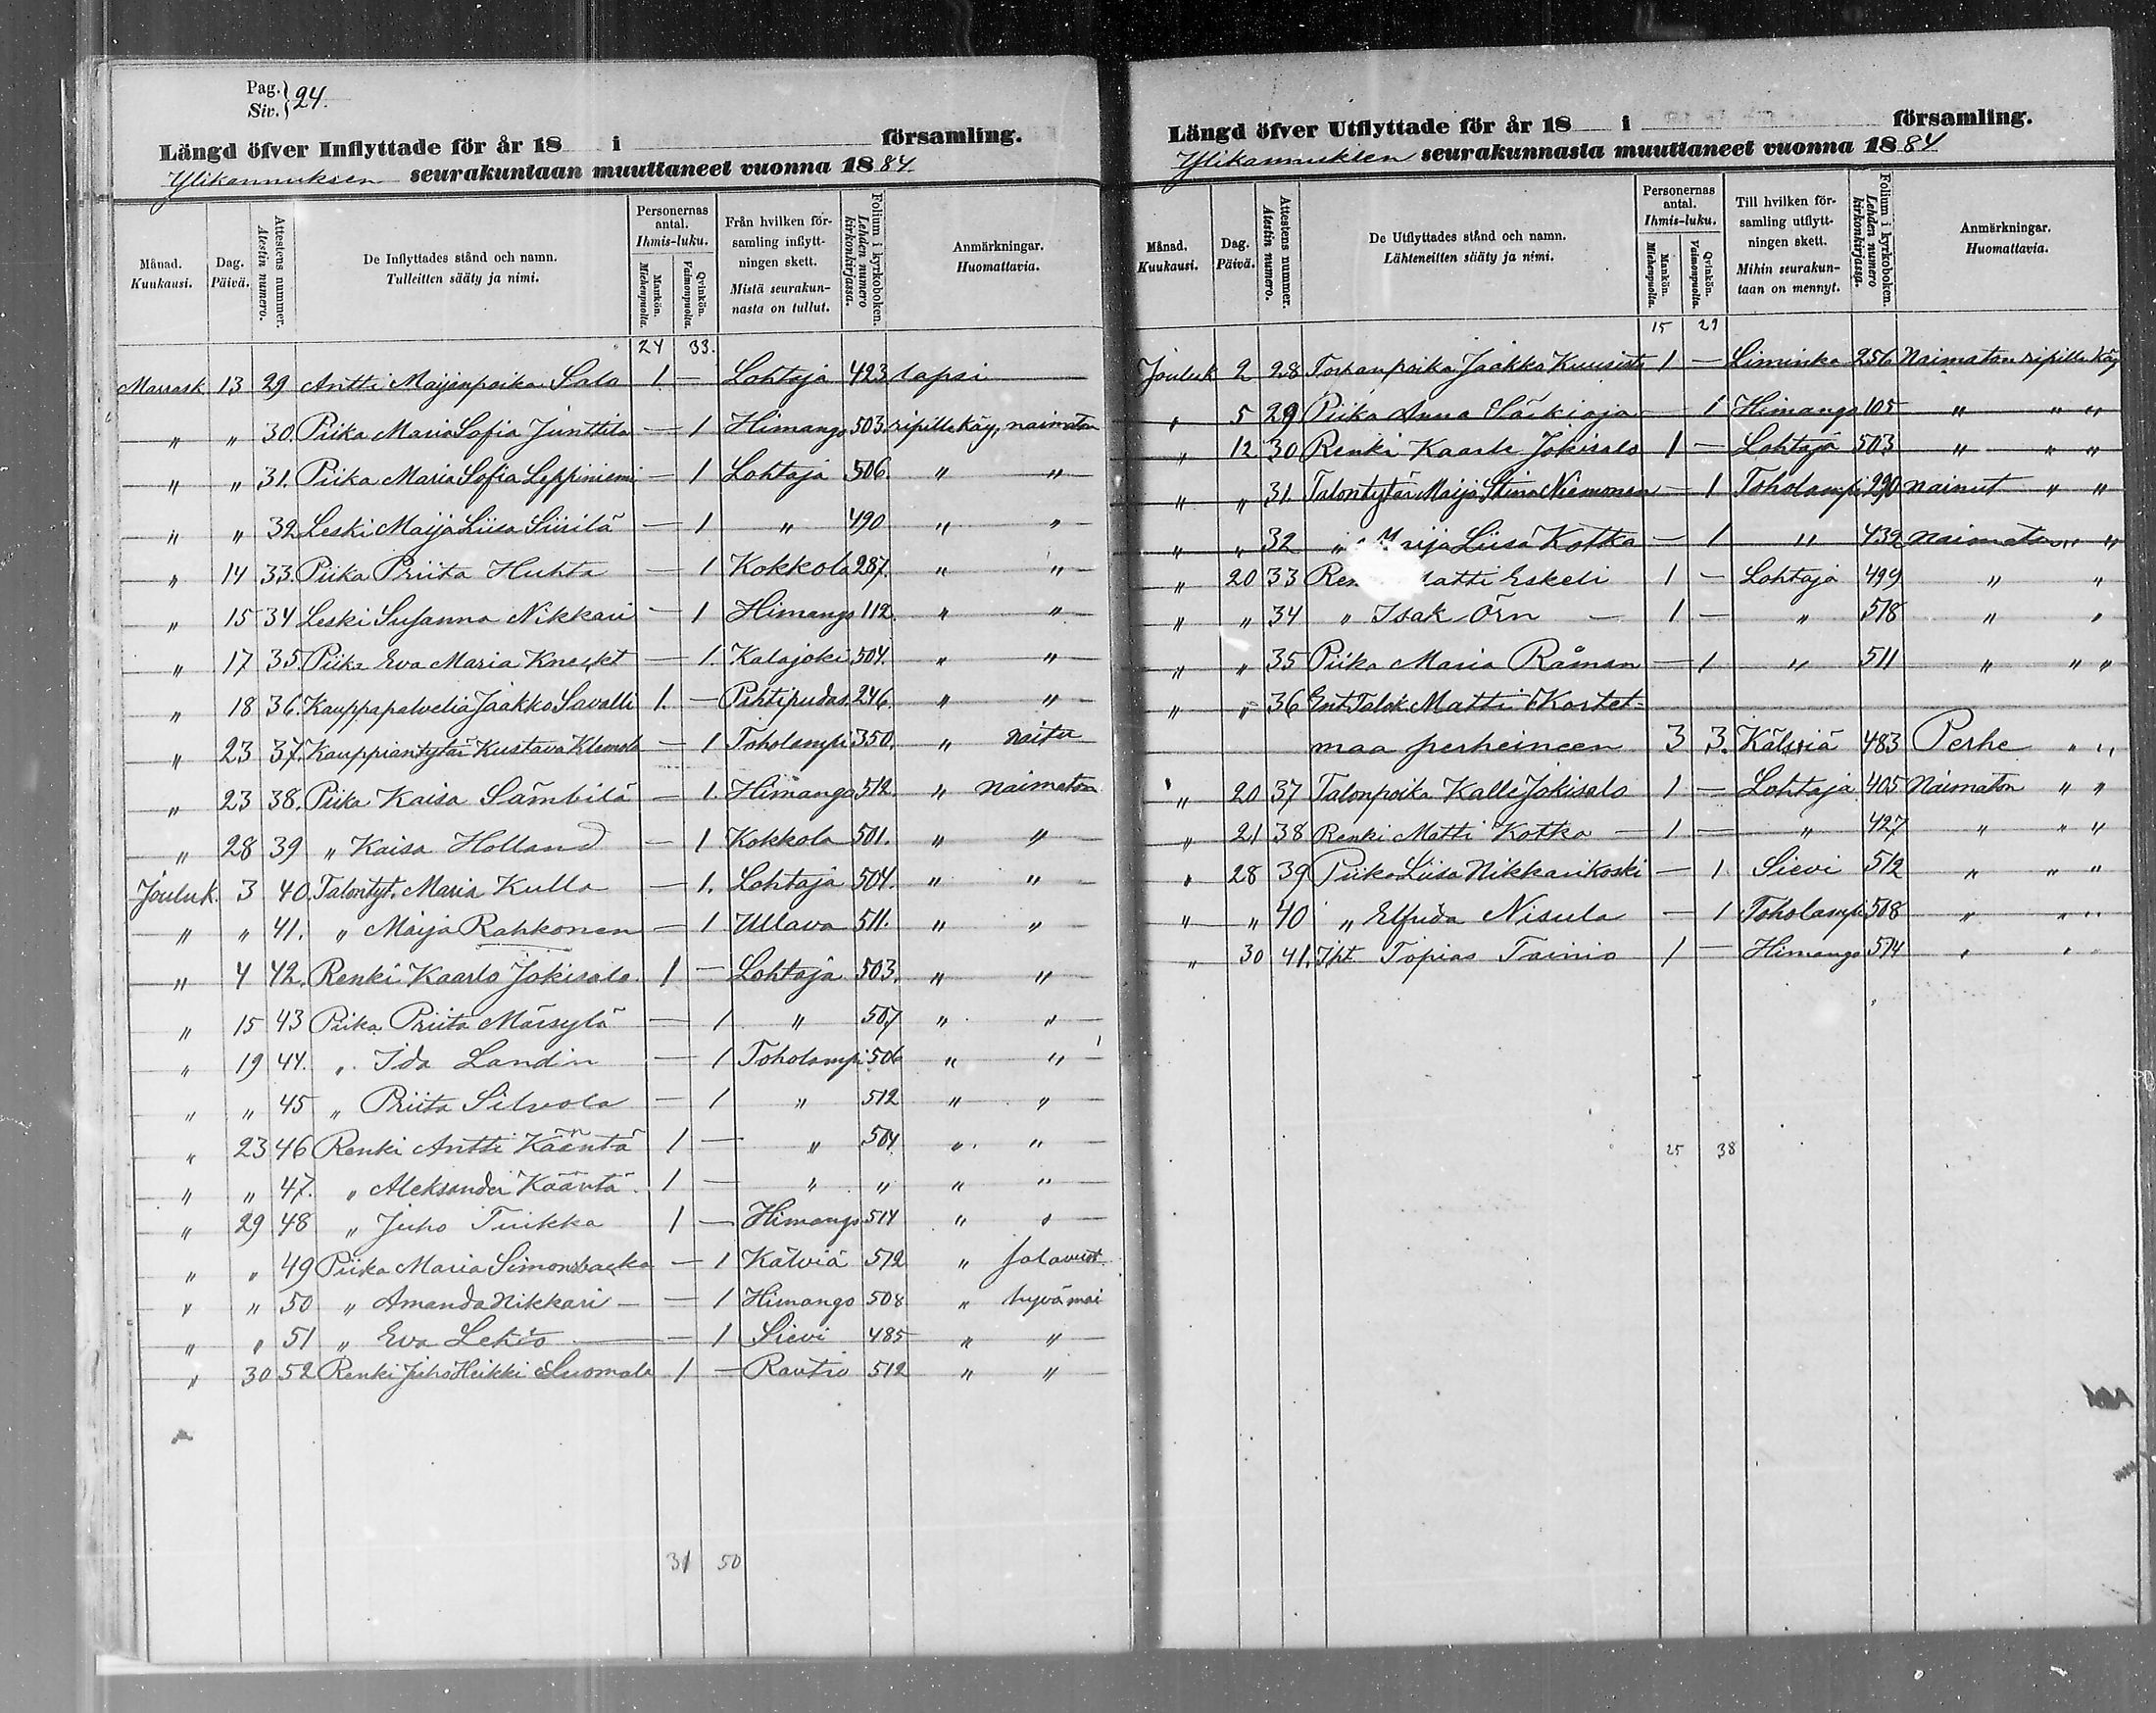 Pag. Siv. } 24.
Längd öfver Inflyttade för år 18 i församling.
Ylikannuksen seurakuntaan muuttaneet vuonna 1884
Månad. Kuukausi. Dag. Päivä. Attestens nummer. Atestin numero. De Inflyttades stånd och namn. Tulleitten sääty ja nimi. Personernas antal. Ihmis-luku. Mankön. Miehenpuolia. Qvinkön. Vaimonpuolia. Från hvilken församling inflyttningen skett. Mistä seurakunnasta on tullut. Folium i kyrkoboken. Lehden numero kirkonkirjassa. Anmärkningar. Huomattavia.
24 33.
Marrask. 13 29 Antti Maijanpoika Salo 1 — Lohtaja 423 lapsi
" " 30. Piika Maria Sofia Junttila — 1 Himango 503. ripille käy, naimaton
" " 31. Piika Maria Sofia Leppiniemi — 1 Lohtaja 506. " "
" " 32 Leski Maija Liisa Siirilä — 1 " 490 " "
" 14 33. Piika Priita Huhta — 1 Kokkola 287. " "
" 15 34 Leski Susanna Nikkari — 1 Himango 112. " "
" 17 35. Piika Eva Maria Kneckt — 1. Kalajoki 504. " "
" 18 36. Kauppapalvelia Jaakko Savalli 1. — Pihtipudas. 246. " "
" 23 37. Kauppiantytär Kustava Klemola — 1 Toholampi 350. " naitu
" 23 38. Piika Kaisa Sämbilä — 1. Himango 512. " naimaton
" 28 39 " Kaisa Holland — 1 Kokkola 501. " "
Jouluk. 3 40. Talontyt. Maria Kulla — 1. Lohtaja 504. " "
" " 41. " Maija Rahkonen — 1 Ullava 511. " "
" 4 42. Renki Kaarlo Jokisalo 1 — Lohtaja 503. " "
" 15 43 Piika Priita Märsylä — 1 " 507 " "
" 19 44. " Ida Landin — 1 Toholampi 506 " "
" " 45 " Priita Silvola — 1 " 512 " "
" 23 46 Renki Antti Kääntä 1 — " 504 " "
" " 47. " Aleksander Kääntä 1 — " " " "
" 29 48 " Juho Tuikka 1 — Himango 514 " "
" " 49 Piika Maria Simonsbacka — 1 Kälviä 512 "
" " 50 " Amanda Nikkari — — 1 Himango 508 " hyvä mai
" " 51 " Eva Lehto — 1 Sievi 485 " "
" 30 52 Renki Juho Heikki Suomala 1 — Rautio 512 " "
31 50
Längd öfver Utflyttade för år 18 i församling.
Ylikannuksen seurakunnasta muuttaneet vuonna 1884
Månad. Kuukausi. Dag. Päivä. Attestens nummer. Atestin numero. De Utflyttades stånd och namn. Lähteneitten sääty ja nimi. Personernas antal. Ihmis-luku. Mankön. Miehenpuolia. Qvinkön. Vaimonpuolia. Till hvilken församling utflyttningen skett. Mihin seurakuntaan on mennyt. Folium i kyrkoboken. Lehden numero kirkonkirjassa. Anmärkningar. Huomattavia.
15 29
Jouluk 2 28 Torpanpoika Jaakko Kuusisto 1 — Liminka 256 Naimaton ripille käy
" 5 29 Piika Anna Särkioja — 1 Himango 105 " " "
" 12 30 Renki Kaarle Jokisalo 1 — Lohtaja 503 " " "
" " 31 Talontytär Maija Stina Niemonen — 1 Toholampi 290 nainut " "
" " 32 " Maija Liisa Kotka — 1 " 432 naimaton " "
" 20 33 Ren Matti Eskeli 1 — Lohtaja 499 " "
" " 34 " Isak Örn — 1 — " 518 " "
" " 35 Piika Maria Råman — 1 " 511 " " "
" " 36 Ent. Talok. Matti Kortet-
maa perheineen 3 3. Kälviä 483 Perhe " "
" 20 37 Talonpoika Kalle Jokisalo 1 — Lohtaja 405 Naimaton " "
" 21 38 Renki Matti Kotka — 1 — " 427 " " "
" 28 39 Piika Liisa Nikkarikoski — 1 Sievi 512 " " "
" " 40 " Elfrida Nisula — 1 Toholampi 508 " " "
" 30 41. Iht. Topias Tainio 1 — Himango 514 " "
25 38